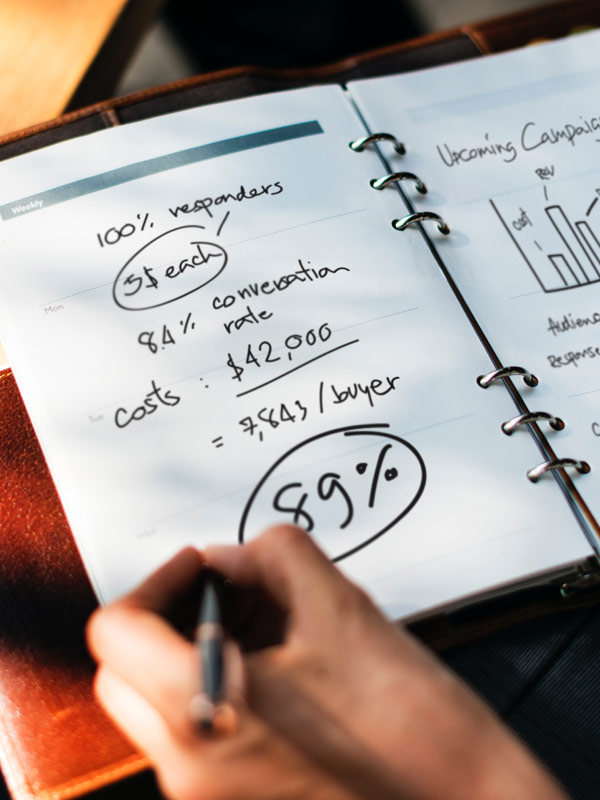 Weekly
100% responders
5$ each
Mon
8.4% conversation
rate
costs : $42,000
= 7,843 / buyer
89%
Upcoming Campaig
Rev
Cost
Audienc
Respons